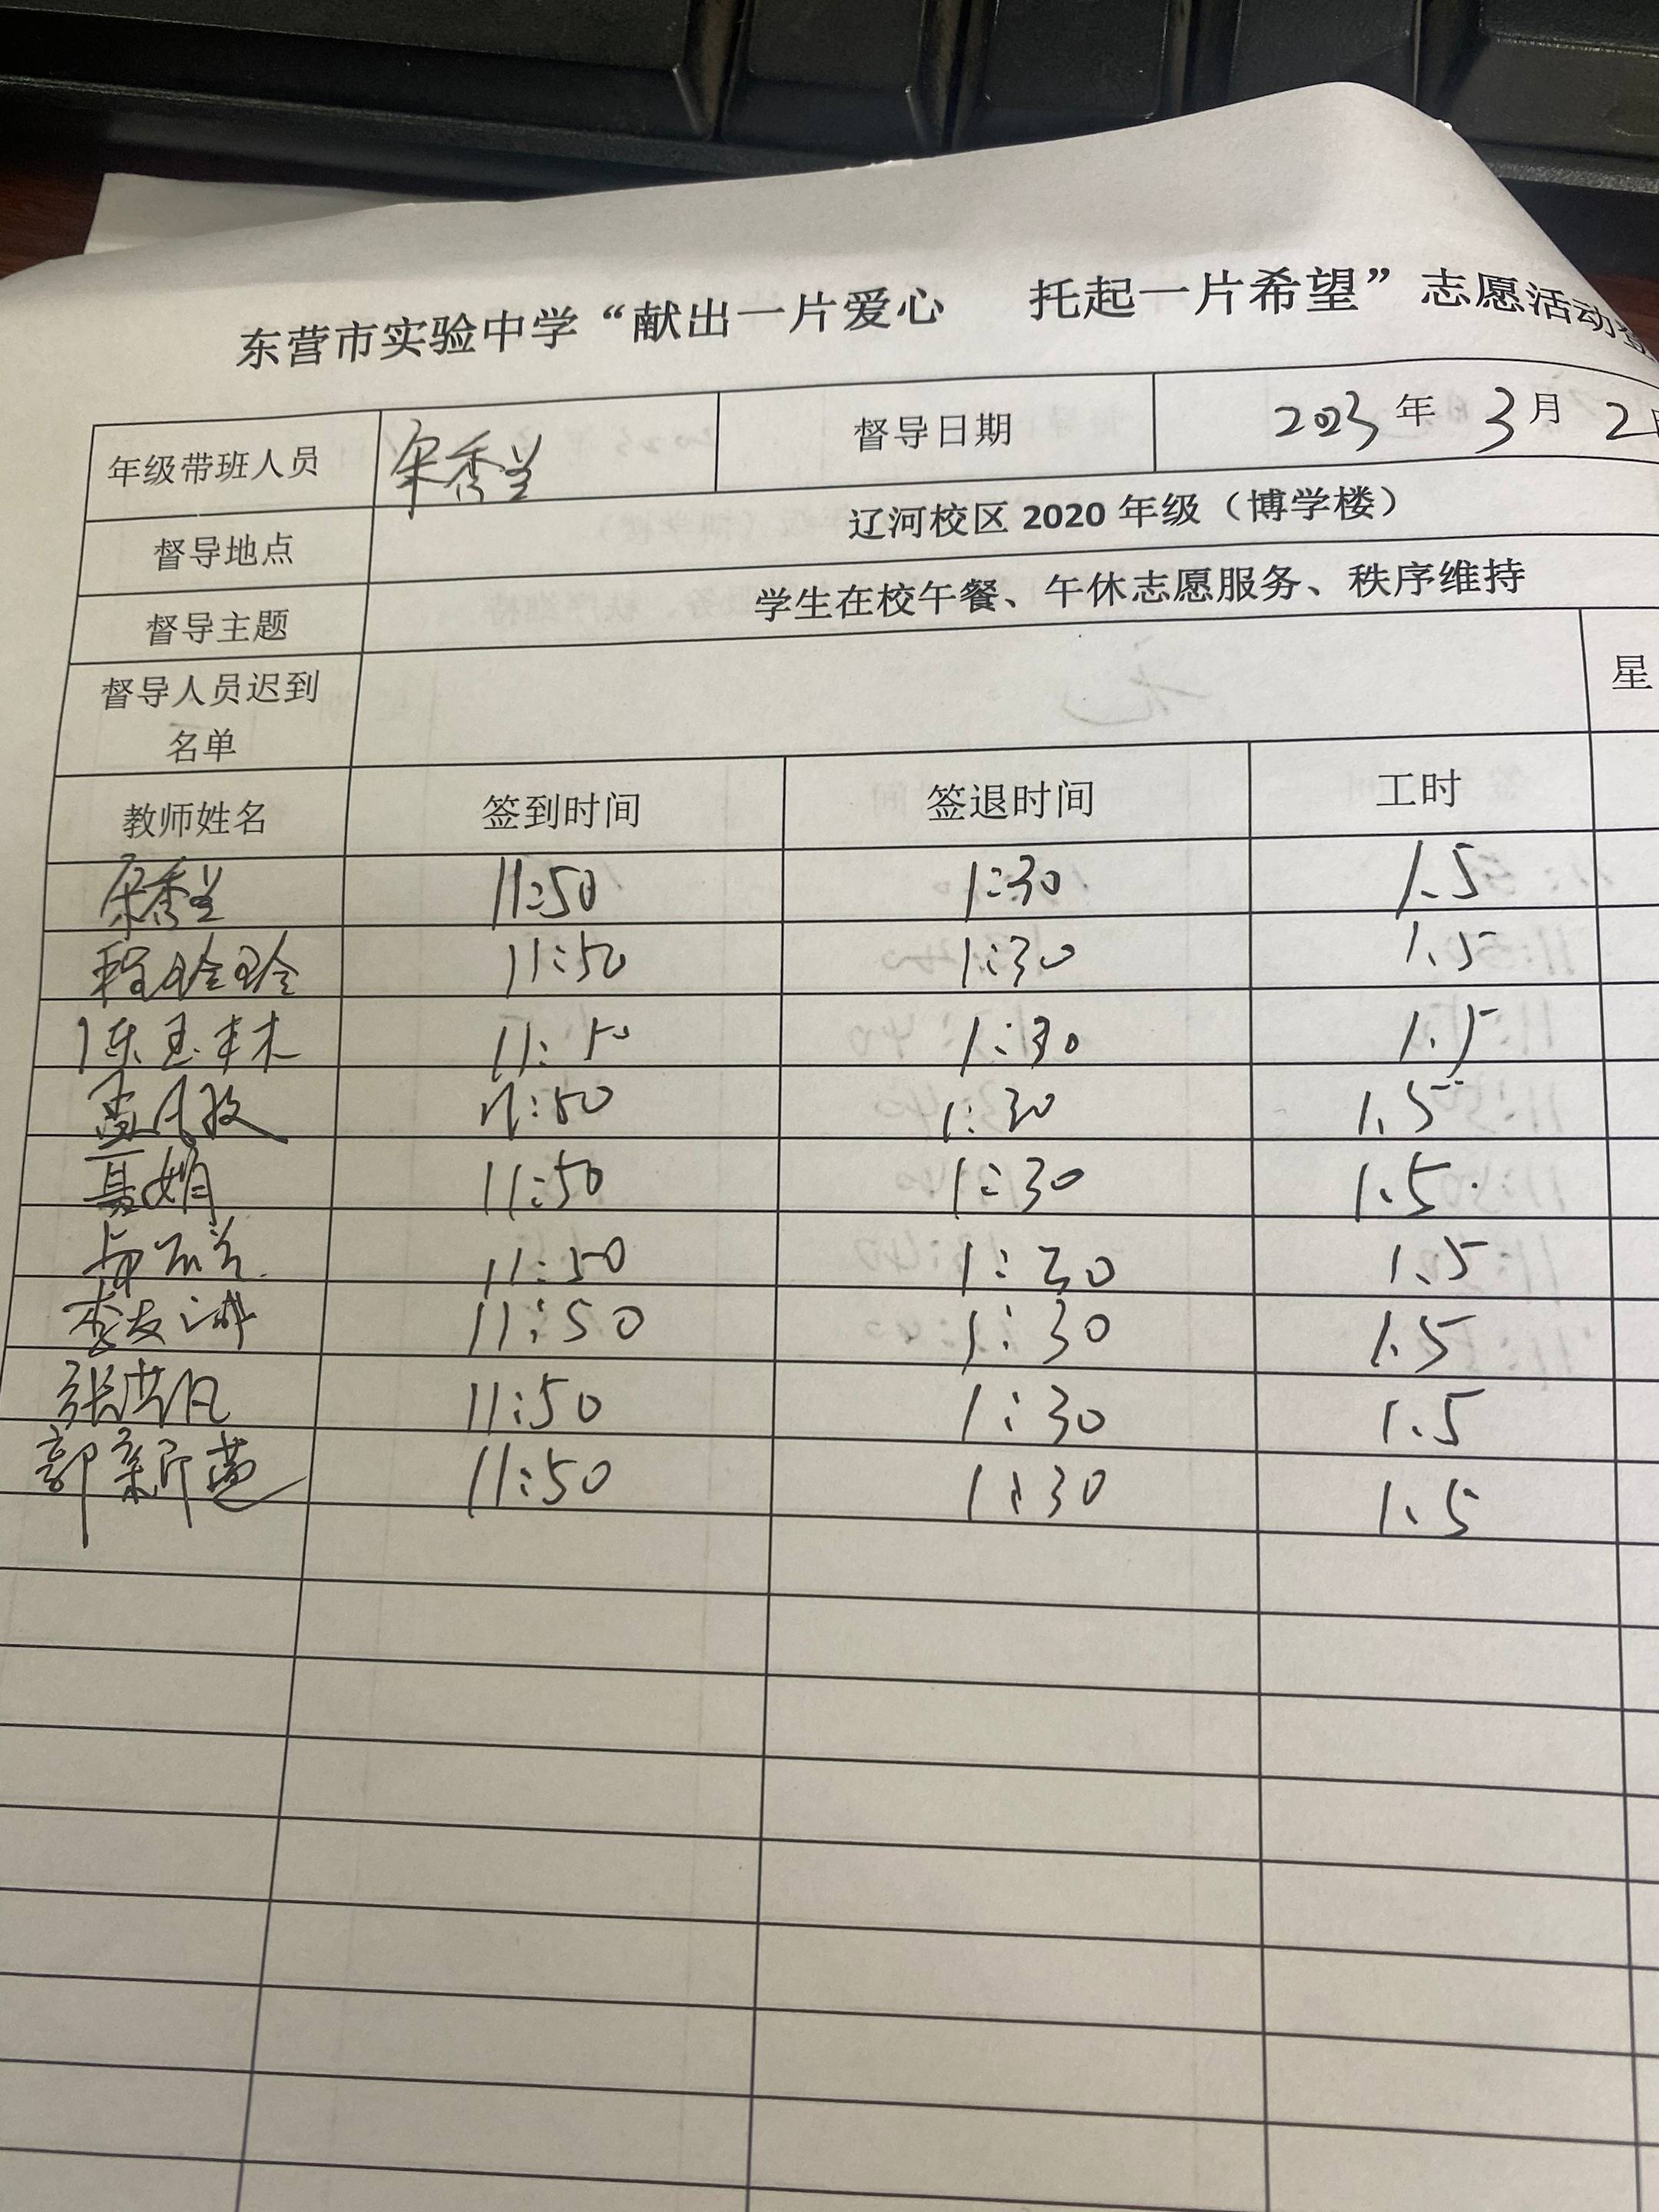 东营市实验中学“献出一片爱心 托起一片希望”志愿活动
年级带班人员 宋秀兰 督导日期 2023年3月2
督导地点 辽河校区2020年级（博学楼）
督导主题 学生在校午餐、午休志愿服务、秩序维持
督导人员迟到 星
名单
教师姓名 签到时间 签退时间 工时
宋秀兰 11:50 1:30 1.5
程玲玲 11:50 1:30 1.5
陈玉林 11:50 1:30 1.5
11:50 1:30 1.5
聂娟 11:50 1:30 1.5
11:50 1:30 1.5
11:50 1:30 1.5
张 11:50 1:30 1.5
郭新 11:50 1:30 1.5